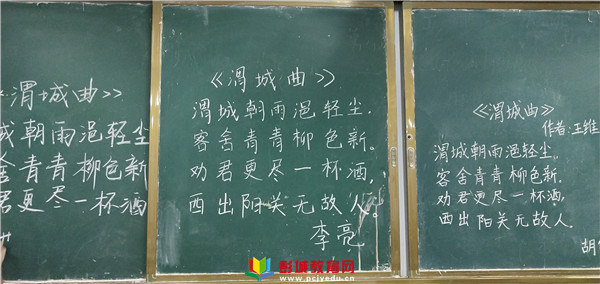 渭城曲》
城朝雨浥轻尘
舍青青柳色新
君更尽一杯酒
《渭城曲》
渭城朝雨浥轻尘,
客舍青青柳色新。
劝君更尽一杯酒,
西出阳关无故人。
李亮
《渭城曲》
作者:王维
渭城朝雨浥轻尘,
客舍青青柳色新.
劝君更尽一杯酒,
西出阳关无故人.
胡
彭城教育网
www.pcjyedu.cn